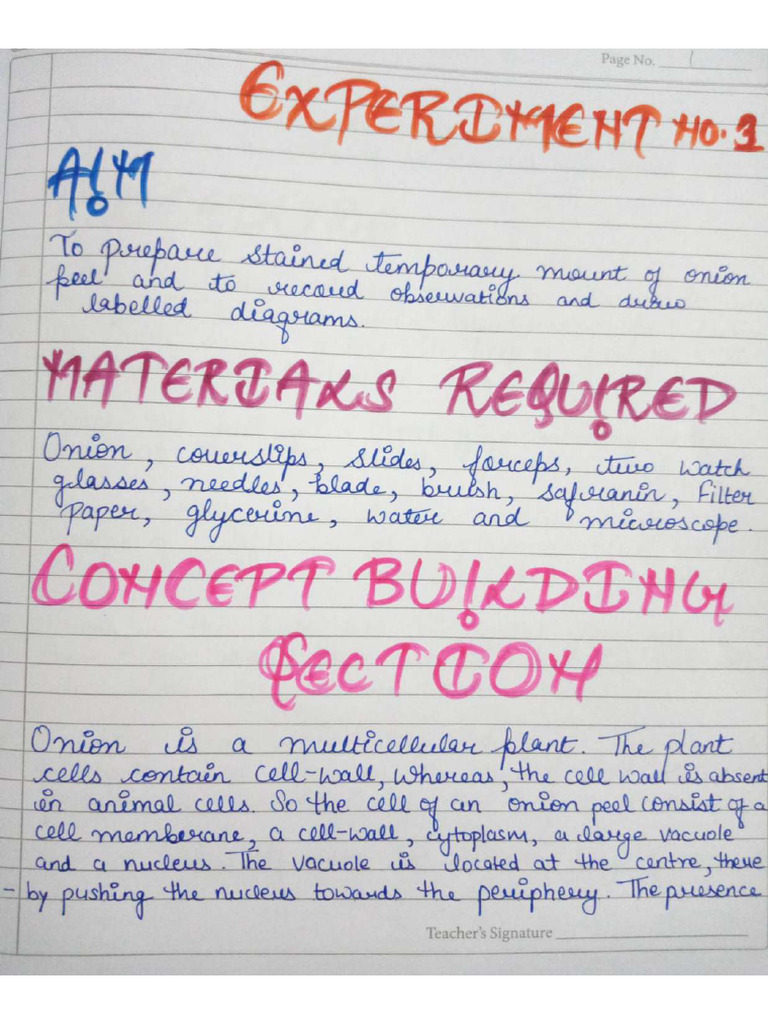 Page No. 1
EXPERIMENT NO. 1
AIM
To prepare stained temporary mount of onion
peel and to record observations and draw
labelled diagrams.
MATERIALS REQUIRED
Onion, coverslips, slides, forceps, two watch
glasses, needles, blade, brush, safranin, filter
paper, glycerine, water and microscope.
CONCEPT BUILDING
SECTION
Onion is a multicellular plant. The plant
cells contain cell-wall, whereas, the cell wall is absent
in animal cells. So the cell of an onion peel consist of a
cell memberane, a cell-wall, cytoplasm, a large vacuole
and a nucleus. The vacuole is located at the centre, there
- by pushing the nucleus towards the periphery. The presence
Teacher's Signature